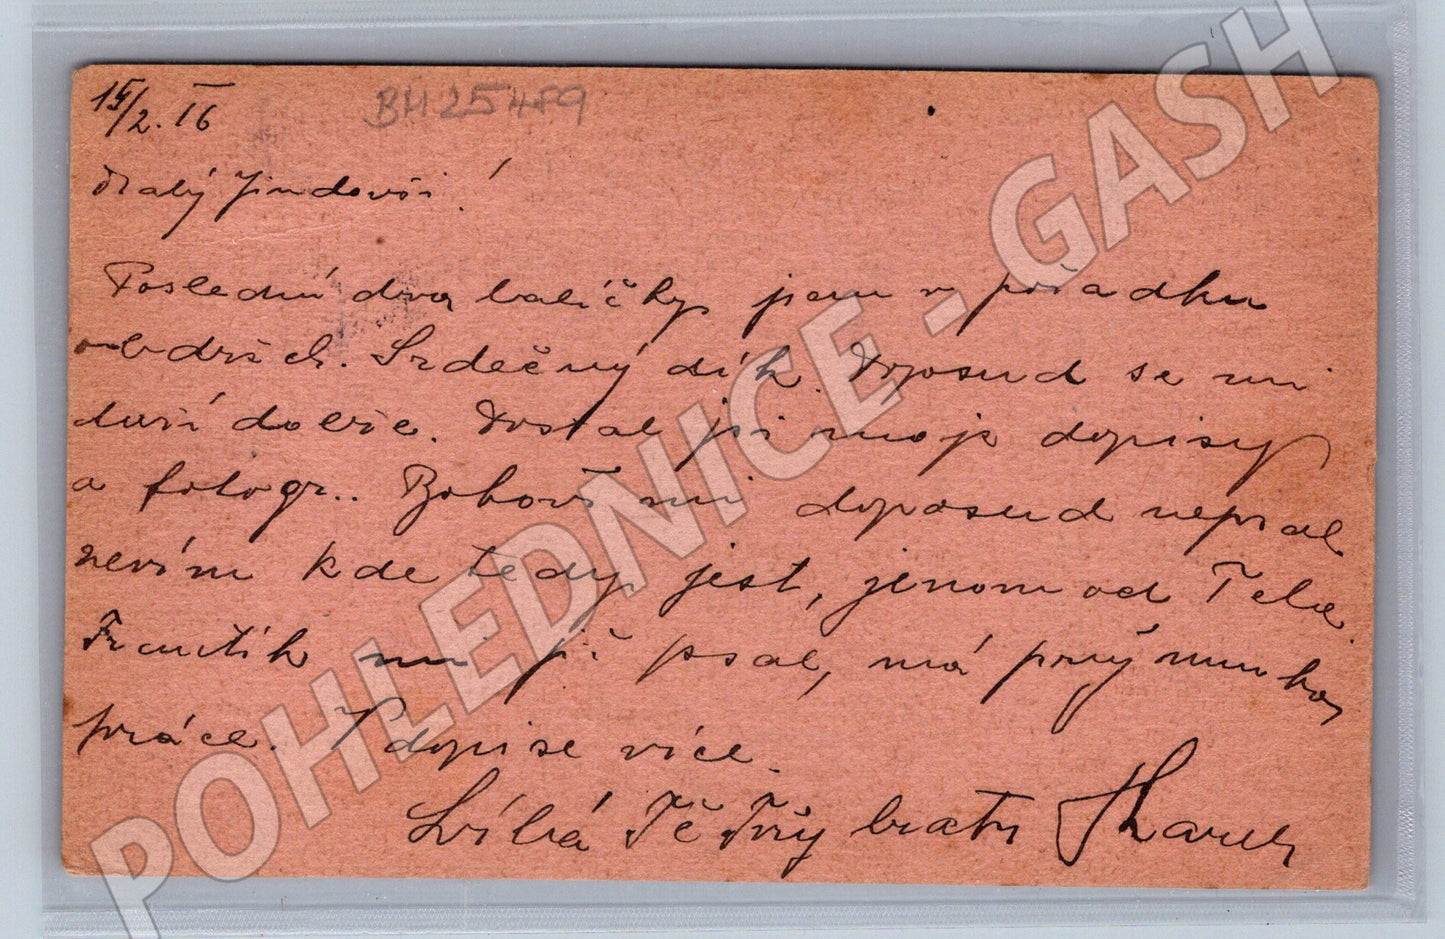 15/2. 16
BH25489
Drahý Jindouši!
Poslední dva balíčky jsem v pořádku
obdržel. Srdečný dík. Doposud se mi
daří dobře. Dostal jsi moje dopisy
a fotogr.. Bohouš mi doposud nepsal
nevím kde tedy jest, jenom od Tebe.
Frantík mi již psal, má prý mnoho
práce. V dopise více.
Líbá Tě Tvůj bratr Karel
POHLEDNICE - GASH